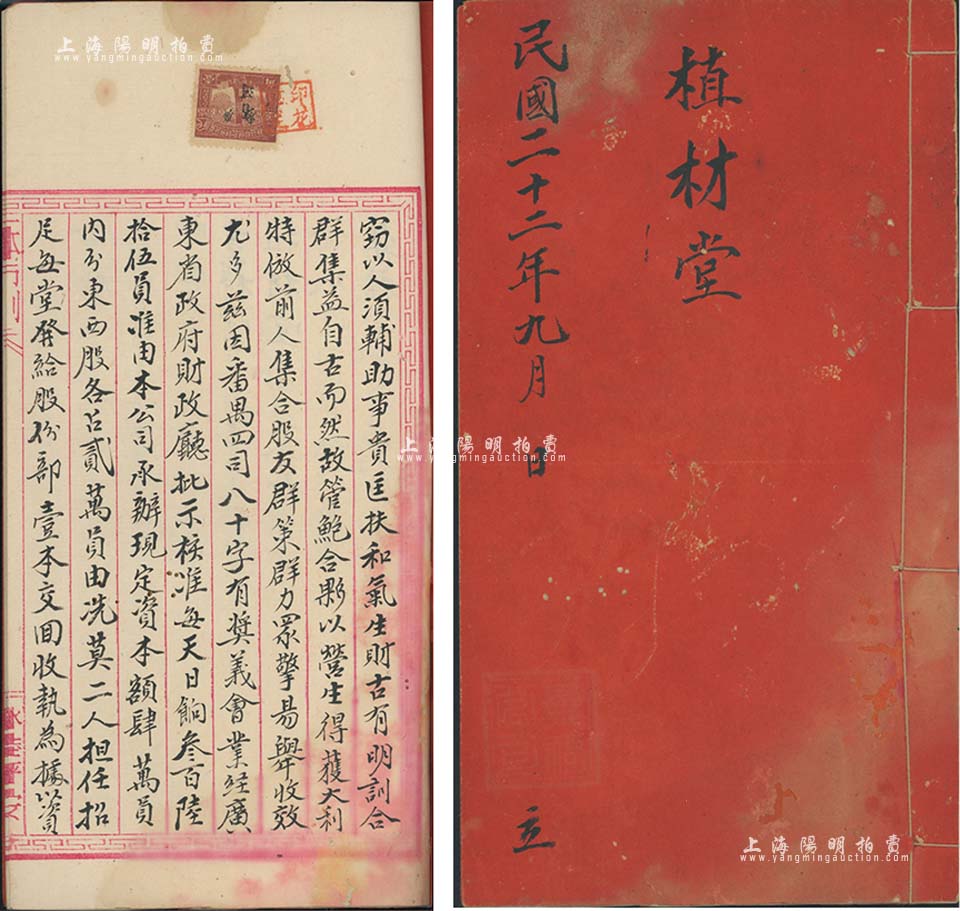 上海陽明拍賣
www.yangmingauction.com
印花
窃以人須輔助事貴匡扶和氣生財古有明訓合
群集益自古而然故管鮑合夥以營生得獲大利
特倣前人集合股友群策群力眾擎易舉收效
尤多茲因番禺四司八十字有獎義會業經廣
東省政府財政廳批示核准每天日餉叁百陸
拾伍員准由本公司承辦現定資本額肆萬員
內分東西股各占貳萬員由冼莫二人担任招
足每堂發給股份部壹本交回收執為據以資
植材堂
民國二十二年九月 日 立
上海陽明拍賣
www.yangmingauction.com
上海陽明拍賣
www.yangmingauction.com